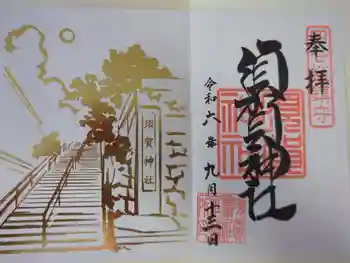 奉拝
須賀神社
令和六年九月十三日
須賀神社